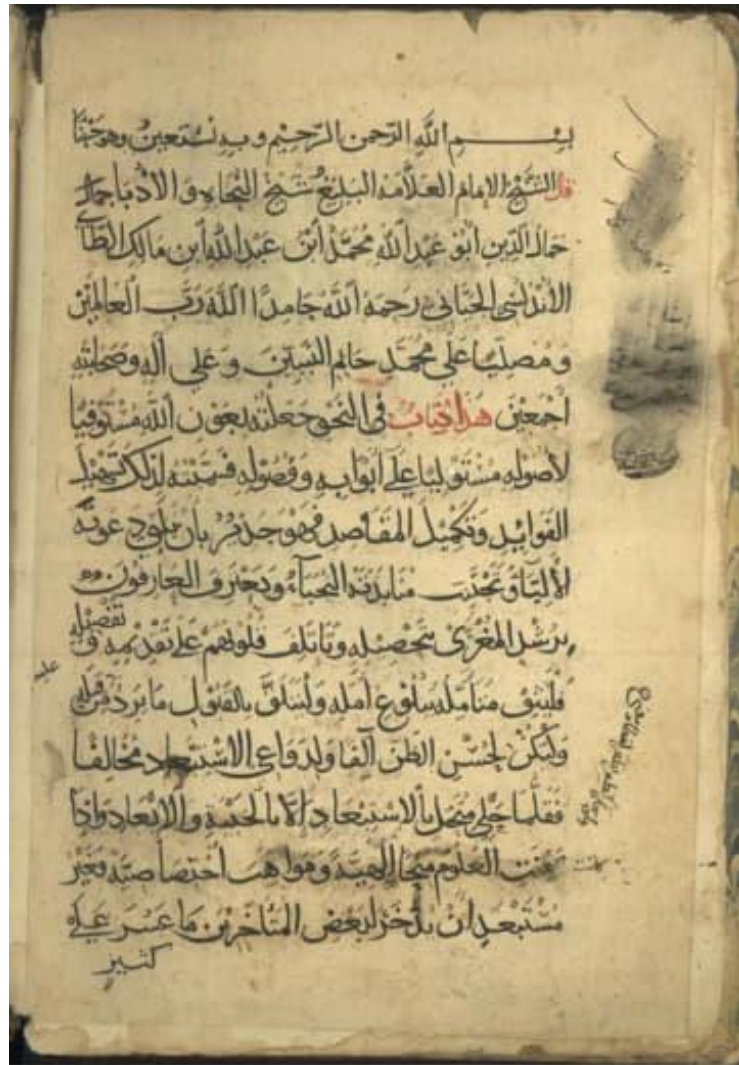 بسم الله الرحمن الرحيم وبه نستعين وهو حسبنا
قال الشيخ الامام العلامة البليغ شيخ النحاه و الادبا جمال
جمال الدين ابو عبد الله محمد ابن عبد الله ابن مالك الطائي
الاندلسي الجياني رحمه الله حامدا الله رب العالمين
ومصليا على محمد خاتم النبيين وعلى اله وصحابته
اجمعين هذا كتاب في النحو جعلته بعون الله مستوفيا
لاصوله مستوليا على ابوابه وفصوله فسميته لذلك تسهيل
الفوايد وتكميل المقاصد فهو جدير بان يلبي دعوته
الالبا وتجتنب منابذته النجباء ويعترف العارفون
برشد المغرى بتحصيله وتاتلف قلوبهم على تقديمه و تفضيله
فليثق متامله ببلوغ امله وليتلق بالقبول ما يرد من قبله
وليكن لحسن الظن الفا ولدواعي الاستبعاد مخالفا
فقلما حلي متحل بالاستبعاد الا بالخيبة والابعاد واذا
كانت العلوم منحا الهية ومواهب اختصاصية فغير
مستبعد ان يدخر لبعض المتاخرين ما عسر على
كثير